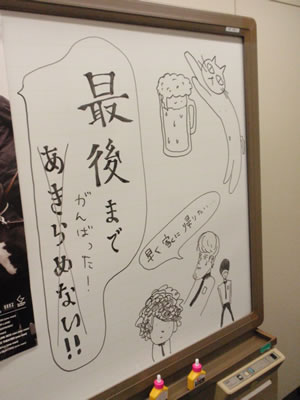 最後まで
あきらめない!!
がんばった!
早く家に帰りた…